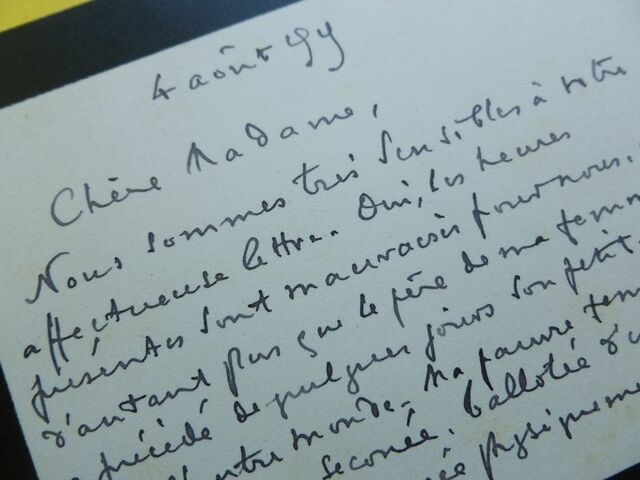 4 août 99
Chère Madame,
Nous sommes très sensibles à votre
affectueuse lettre. Oui, les heures
présentes sont mauvaises pour nous,
d'autant plus que le père de ma femme
a précédé de quelques jours son petit
l'autre monde. Ma pauvre
secouée. Ballotée
physiquement